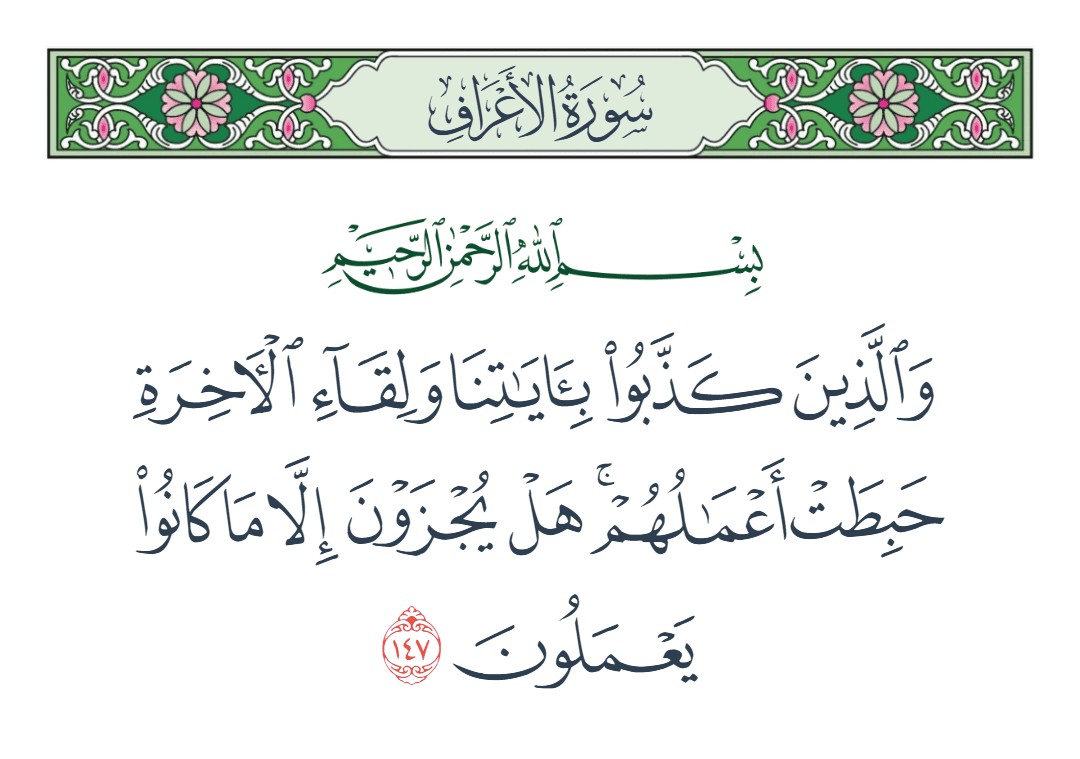 سُورَةُ الأَعْرَافِ
بِسْمِ ٱللَّهِ ٱلرَّحْمَٰنِ ٱلرَّحِيمِ
وَٱلَّذِينَ كَذَّبُوا۟ بِـَٔايَـٰتِنَا وَلِقَآءِ ٱلْـَٔاخِرَةِ
حَبِطَتْ أَعْمَـٰلُهُمْ ۚ هَلْ يُجْزَوْنَ إِلَّا مَا كَانُوا۟
يَعْمَلُونَ ١٤٧